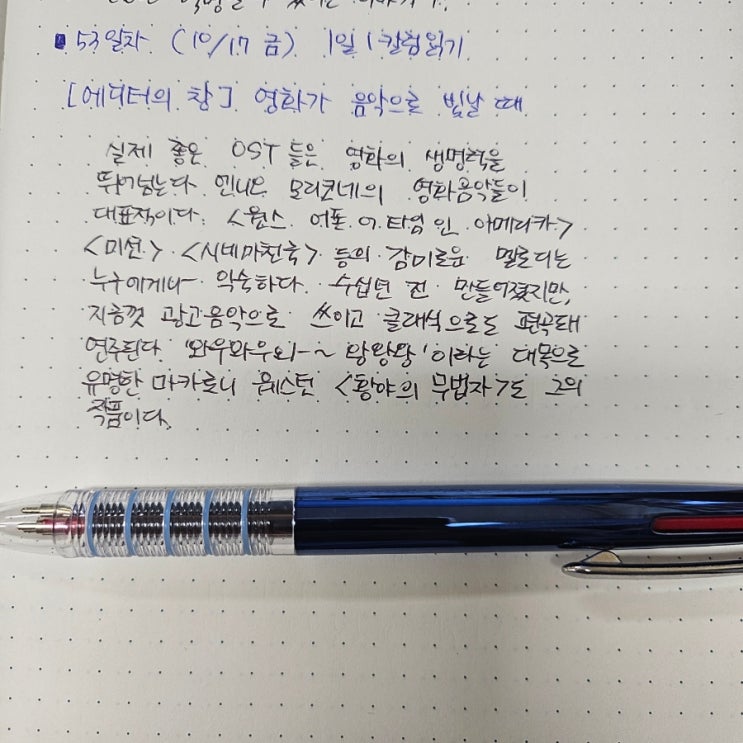 ■ 53일차 (10/17 금) 1일 1칼럼읽기
[에디터의 창] 영화가 음악으로 빛날 때
실제 좋은 OST 들은 영화의 생명력을
뛰어넘는다. 엔니오 모리코네의 영화음악들이
대표적이다. <원스 어폰 어 타임 인 아메리카>
<미션> <시네마천국> 등의 감미로운 멜로디는
누구에게나 익숙하다. 수십년 전 만들어졌지만,
지금껏 광고음악으로 쓰이고 클래식으로도 편곡돼
연주된다. '와우와우와~ 왕왕왕' 이라는 대목으로
유명한 마카로니 웨스턴 <황야의 무법자>도 그의
작품이다.